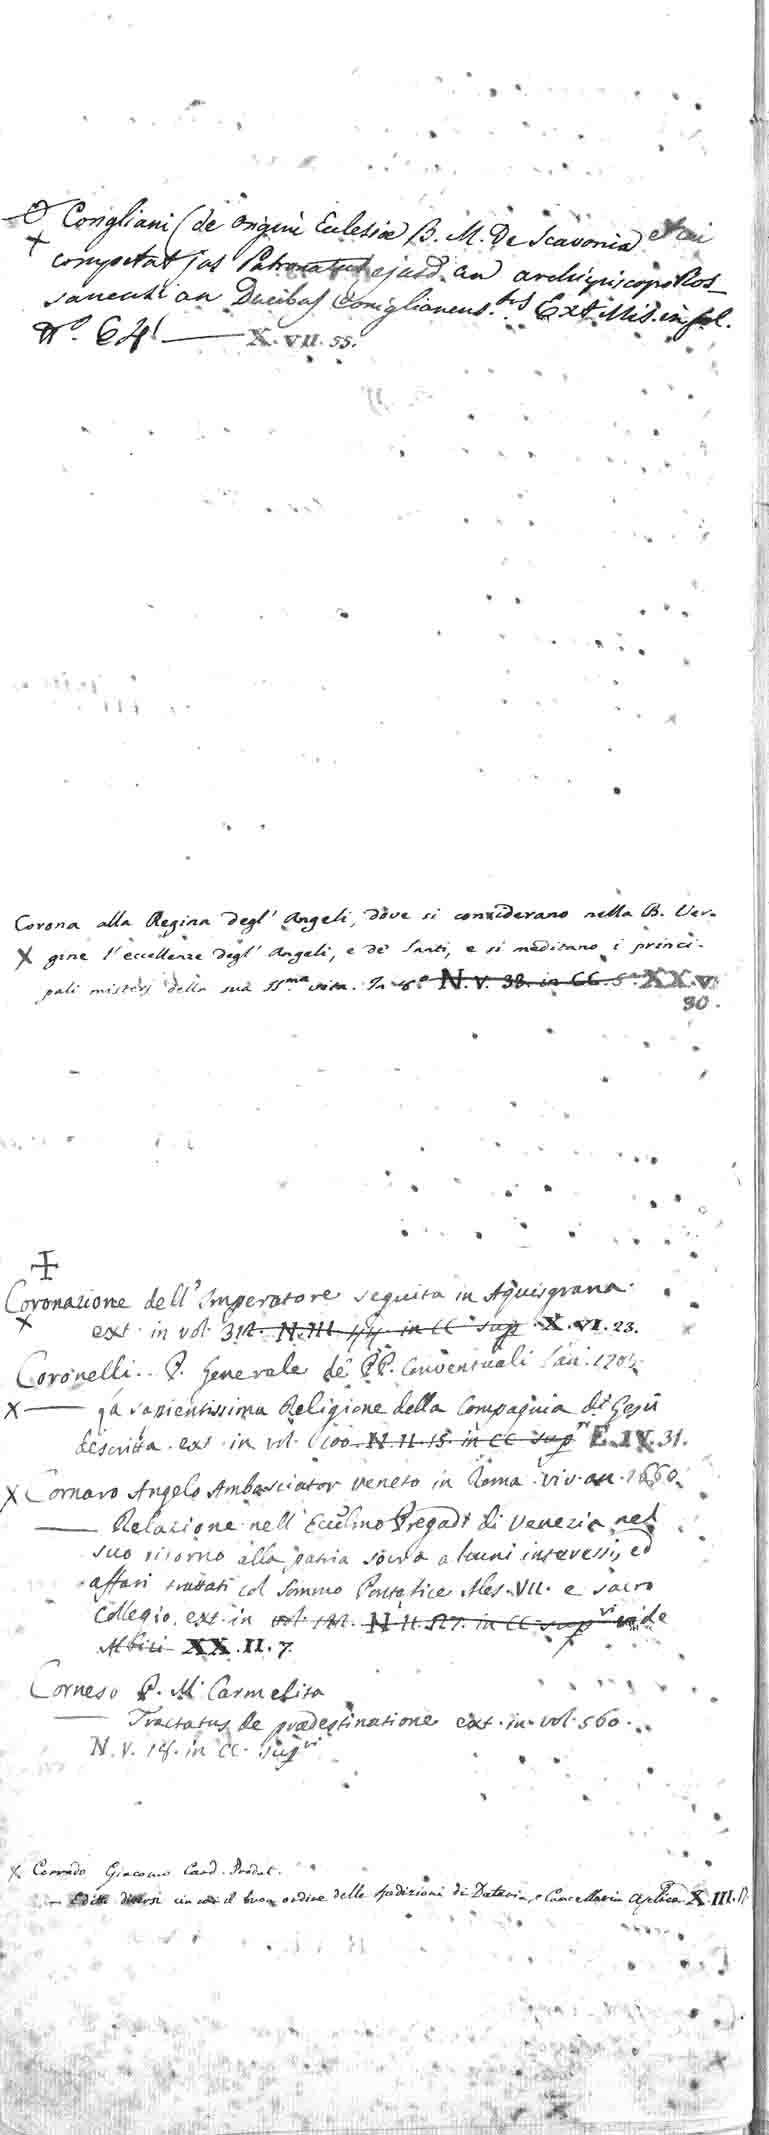 Corigliani (de origine Eclesiæ B. M. De Scavonia et cui
competat jus Patronatus ejusd. an archiepiscopo Ros_
sanensi an Ducibus Coriglianens.bus Ext Mis. in fol.
N.º 64 — X. VII. 55.
Corona alla Regina degl' Angeli, dove si considerano nella B. Ver-
X gine l'eccellenze degl' Angeli, e de' Santi, e si meditano i princi-
pali misterj della sua SS.ma vita. In 8º N. V. 38. in CC. XX. V.
30.
Coronazione dell' Imperatore seguita in Aquisgrana.
X ext. in vol. 312. N. III. 44. in CC sup X. VI. 23.
Coronelli. P. Generale de PP. Conventuali
X — La sapientissima Religione della Compagnia di Gesù
descritta. ext. in vol. 100. N. II. 15. in CC sup E. IV. 31.
X Cornaro Angelo Ambasciator Veneto in Roma. viv. an. 1660.
— Relazione nell' Eccelmo Pregadi di Venezia nel
suo ritorno alla patria sovra alcuni interessi, ed
affari trattati col Sommo Pontefice Ales. VII. e sacro
Collegio. ext. in vol. N. II. 527. in CC sup vi vide
Albici XX. II. 7.
Corneso P. M. Carmelita
— Tractatus de prædestinatione ext. in vol. 560.
N. V. 14. in CC. sup vi
X Corrado Giacomo Card. Prodat.
— Editti diversi circa il buon ordine delle spedizioni di Dataria, e Cancellaria Aplica X. III.